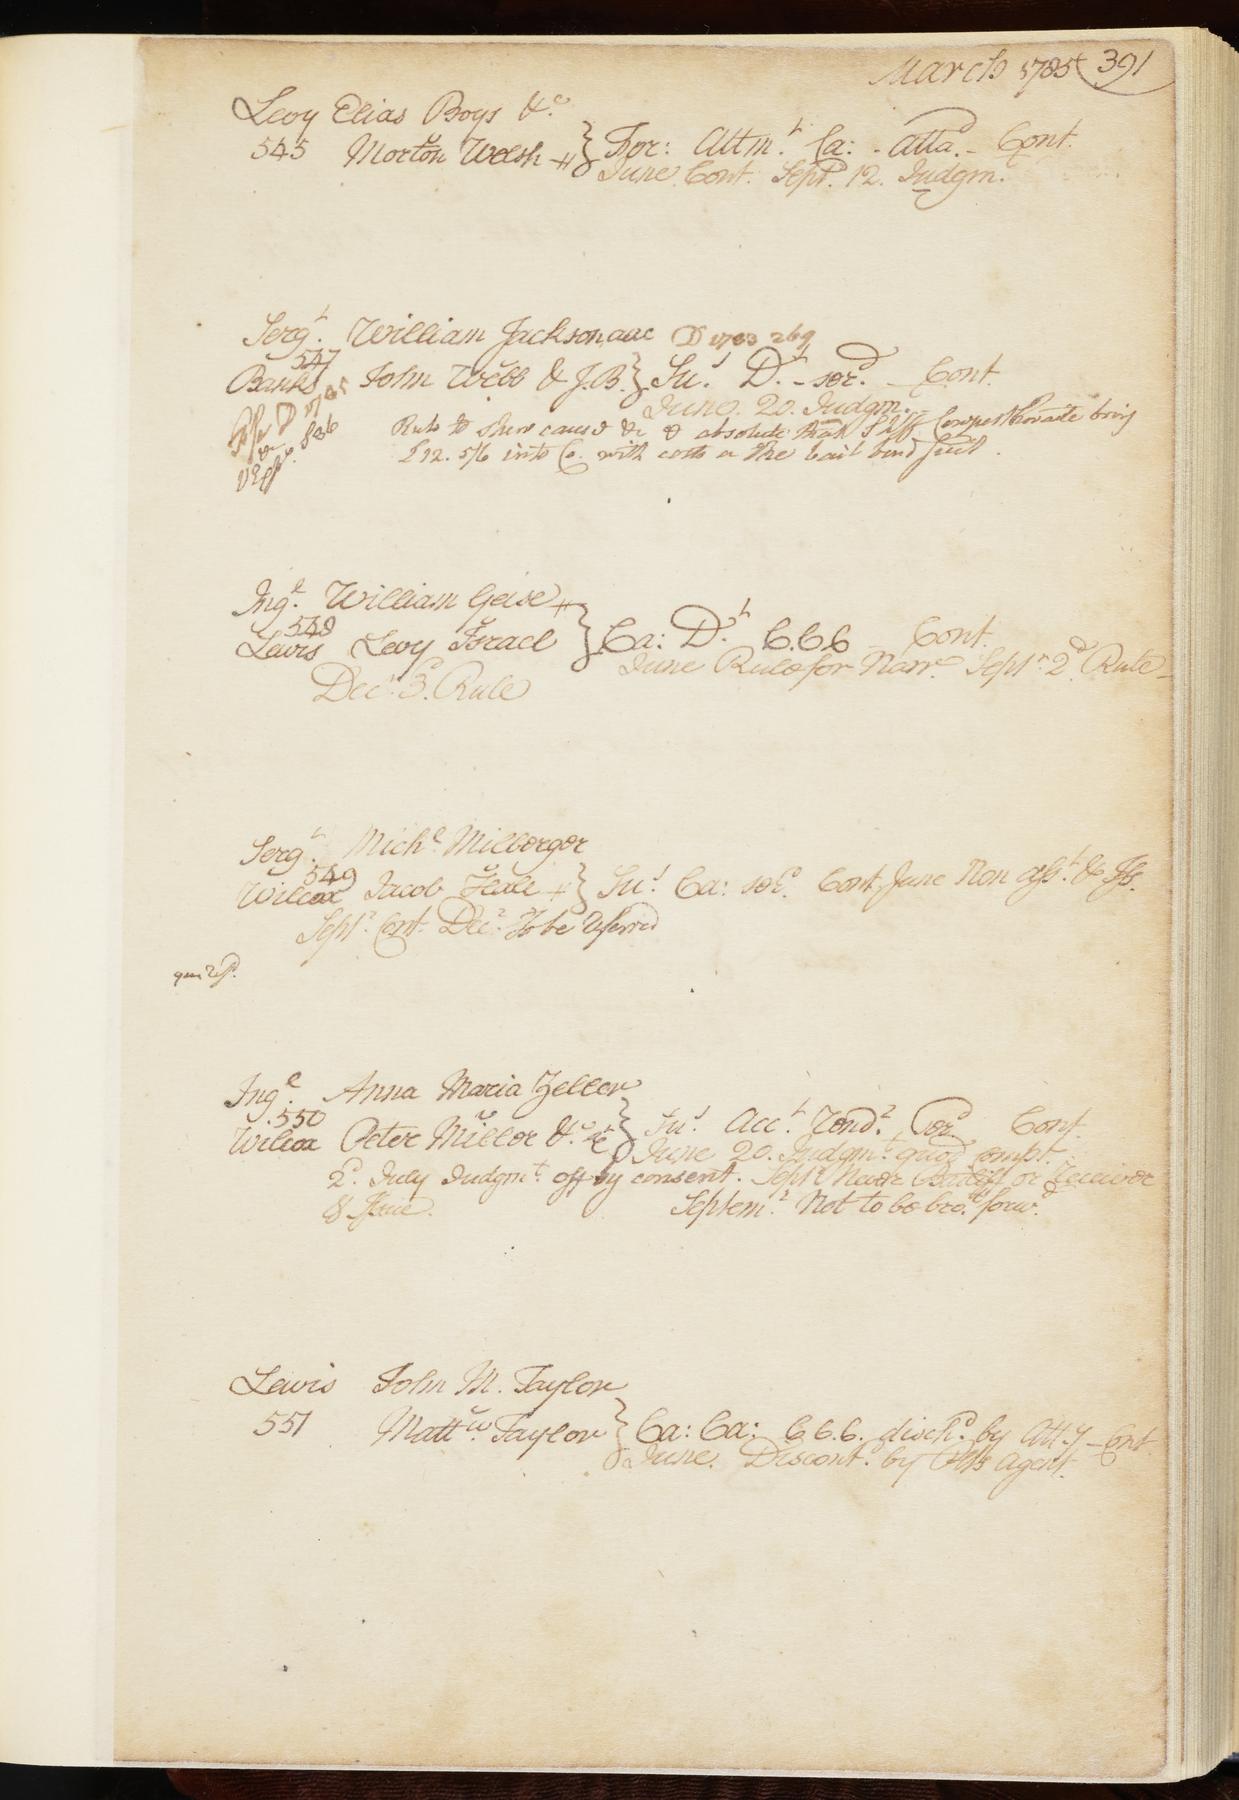 March 1785 391
Levy Elias Boys &c.
545 Morton Welsh } For: Attmt. Ca: - atta. - Cont.
June Cont. Sept. 12. Judgm.
Sergt. William Jackson D 1783 269
547
Banks John Webb & J.B. } Sus. Dt. - serd. - Cont.
June. 20. Judgm.
Rule to shew cause &c absolute that Shff bring
£12. 5/6 into Co. with costs or the bail bond
Ingl. William Geise
548
Lewis Levy Israel } Ca: Dt. C.C.C Cont.
June Rule for Narr. Septr. 2d. Rule
Decr. 3d. Rule
Sergt. Michl. Milberger
549
Wilcox Jacob } Sus. Ca: serd. Cont. June Non asst. & Iss.
Septr. Cont. Decr. To be referred
Ingl. Anna Maria Zeller
550
Wilcox Peter Miller &c. } Sus. Acct. Rendr. Serd Cont.
June 20. Judgmt. quod compt.
2d. July Judgmt. off by consent. Septr Never Bailiff or Receiver
& Issue. Septemr. Not to be brot. forwd.
Lewis John M. Taylor
551 Mattw. Taylor } Ca: Ca: C.C.C. dischd. by Atty - Cont
June. Discontd. by Plffs Agent.